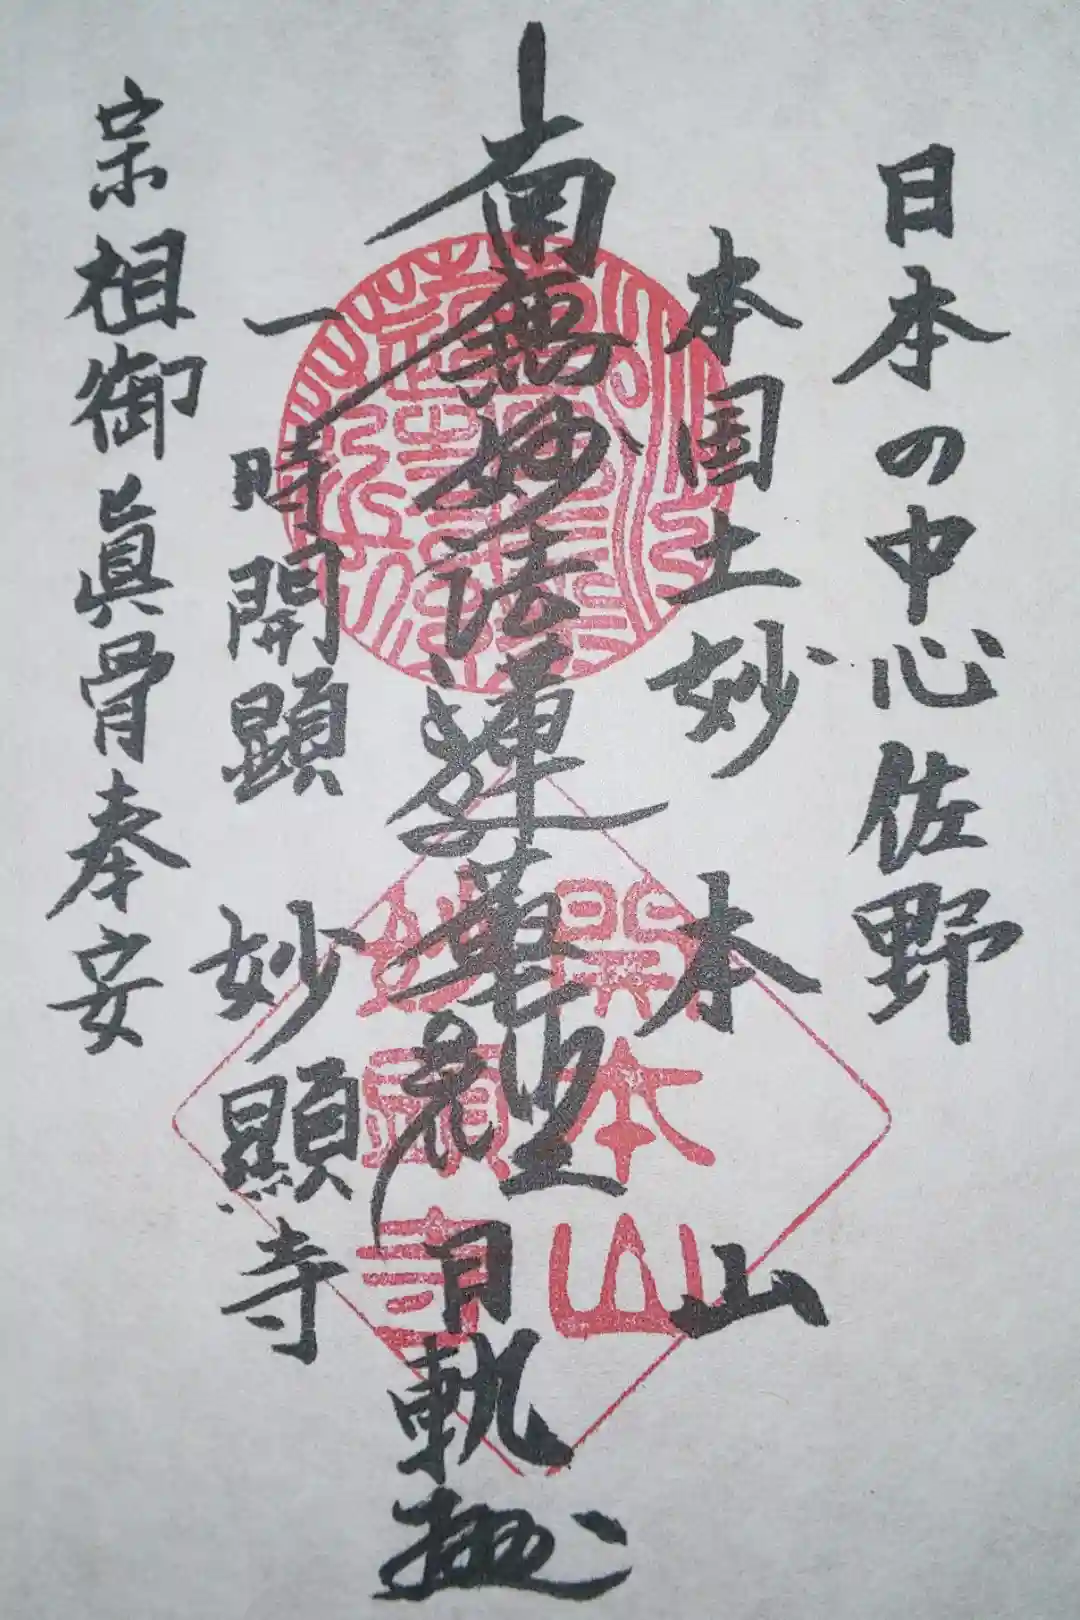 日本の中心佐野
本国土妙 本山
南無妙法蓮華経
日軌
一時開顕 妙顯寺
宗祖御眞骨奉安
開本山
妙顯寺